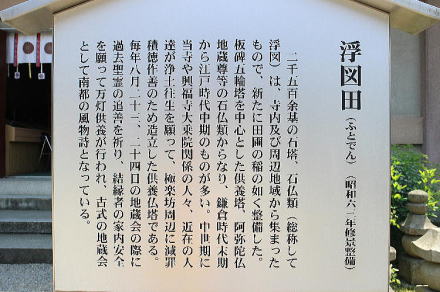 浮図田（ふとでん）（昭和六三年修景整備）
二千五百余基の石塔、石仏類（総称して
浮図）は、寺内及び周辺地域から集まった
もので、新たに田圃の稲の如く整備した。
板碑五輪塔を中心とした供養塔、阿弥陀仏
地蔵尊等の石仏類からなり、鎌倉時代末期
から江戸時代中期のものが多い。中世期に
当寺や興福寺大乗院関係の人々、近在の人
達が浄土往生を願って、極楽坊周辺に減罪
積徳作善のため造立した供養仏塔である。
毎年八月二十三、二十四日の地蔵会の際に
過去聖霊の追善を祈り、結縁者の家内安全
を願って万灯供養が行われ、古武の地蔵会
として南都の風物詩となっている。